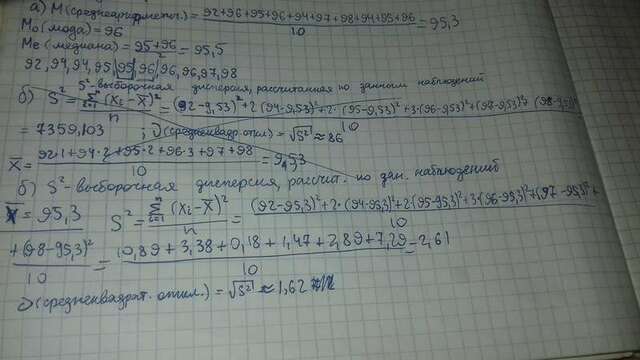 а) М (среднеарифметич.) = 92+96+95+96+94+97+98+94+95+96 / 10 = 95,3
Mo (мода) = 96
Me (медиана) = 95+96 / 2 = 95,5
92, 94, 94, 95, 95, 96, 96, 96, 97, 98
S² - выборочная дисперсия, рассчитанная по данным наблюдений
б) S² = Σ i=1 (Xi - X̅)² / n = (92-9,53)² + 2·(94-9,53)² + 2·(95-9,53)² + 3·(96-9,53)² + (97-9,53)² + (98-9,53)² / 10
= 7359,103 ; (среднеквадр. откл.) = √S² ≈ 86
X̅ = 92·1+94·2+95·2+96·3+97+98 / 10 = 9,53
б) S² - выборочная дисперсия, рассчит. по дан. наблюдений
X̅ = 95,3 S² = Σ i=1 (Xi - X̅)² / n = (92-95,3)²+2·(94-95,3)²+2·(95-95,3)²+3·(96-95,3)²+(97-95,3)²+
+(98-95,3)² / 10 = 10,89+3,38+0,18+1,47+2,89+7,29 / 10 = 2,61
(среднеквадрат. откл.) = √S² ≈ 1,62